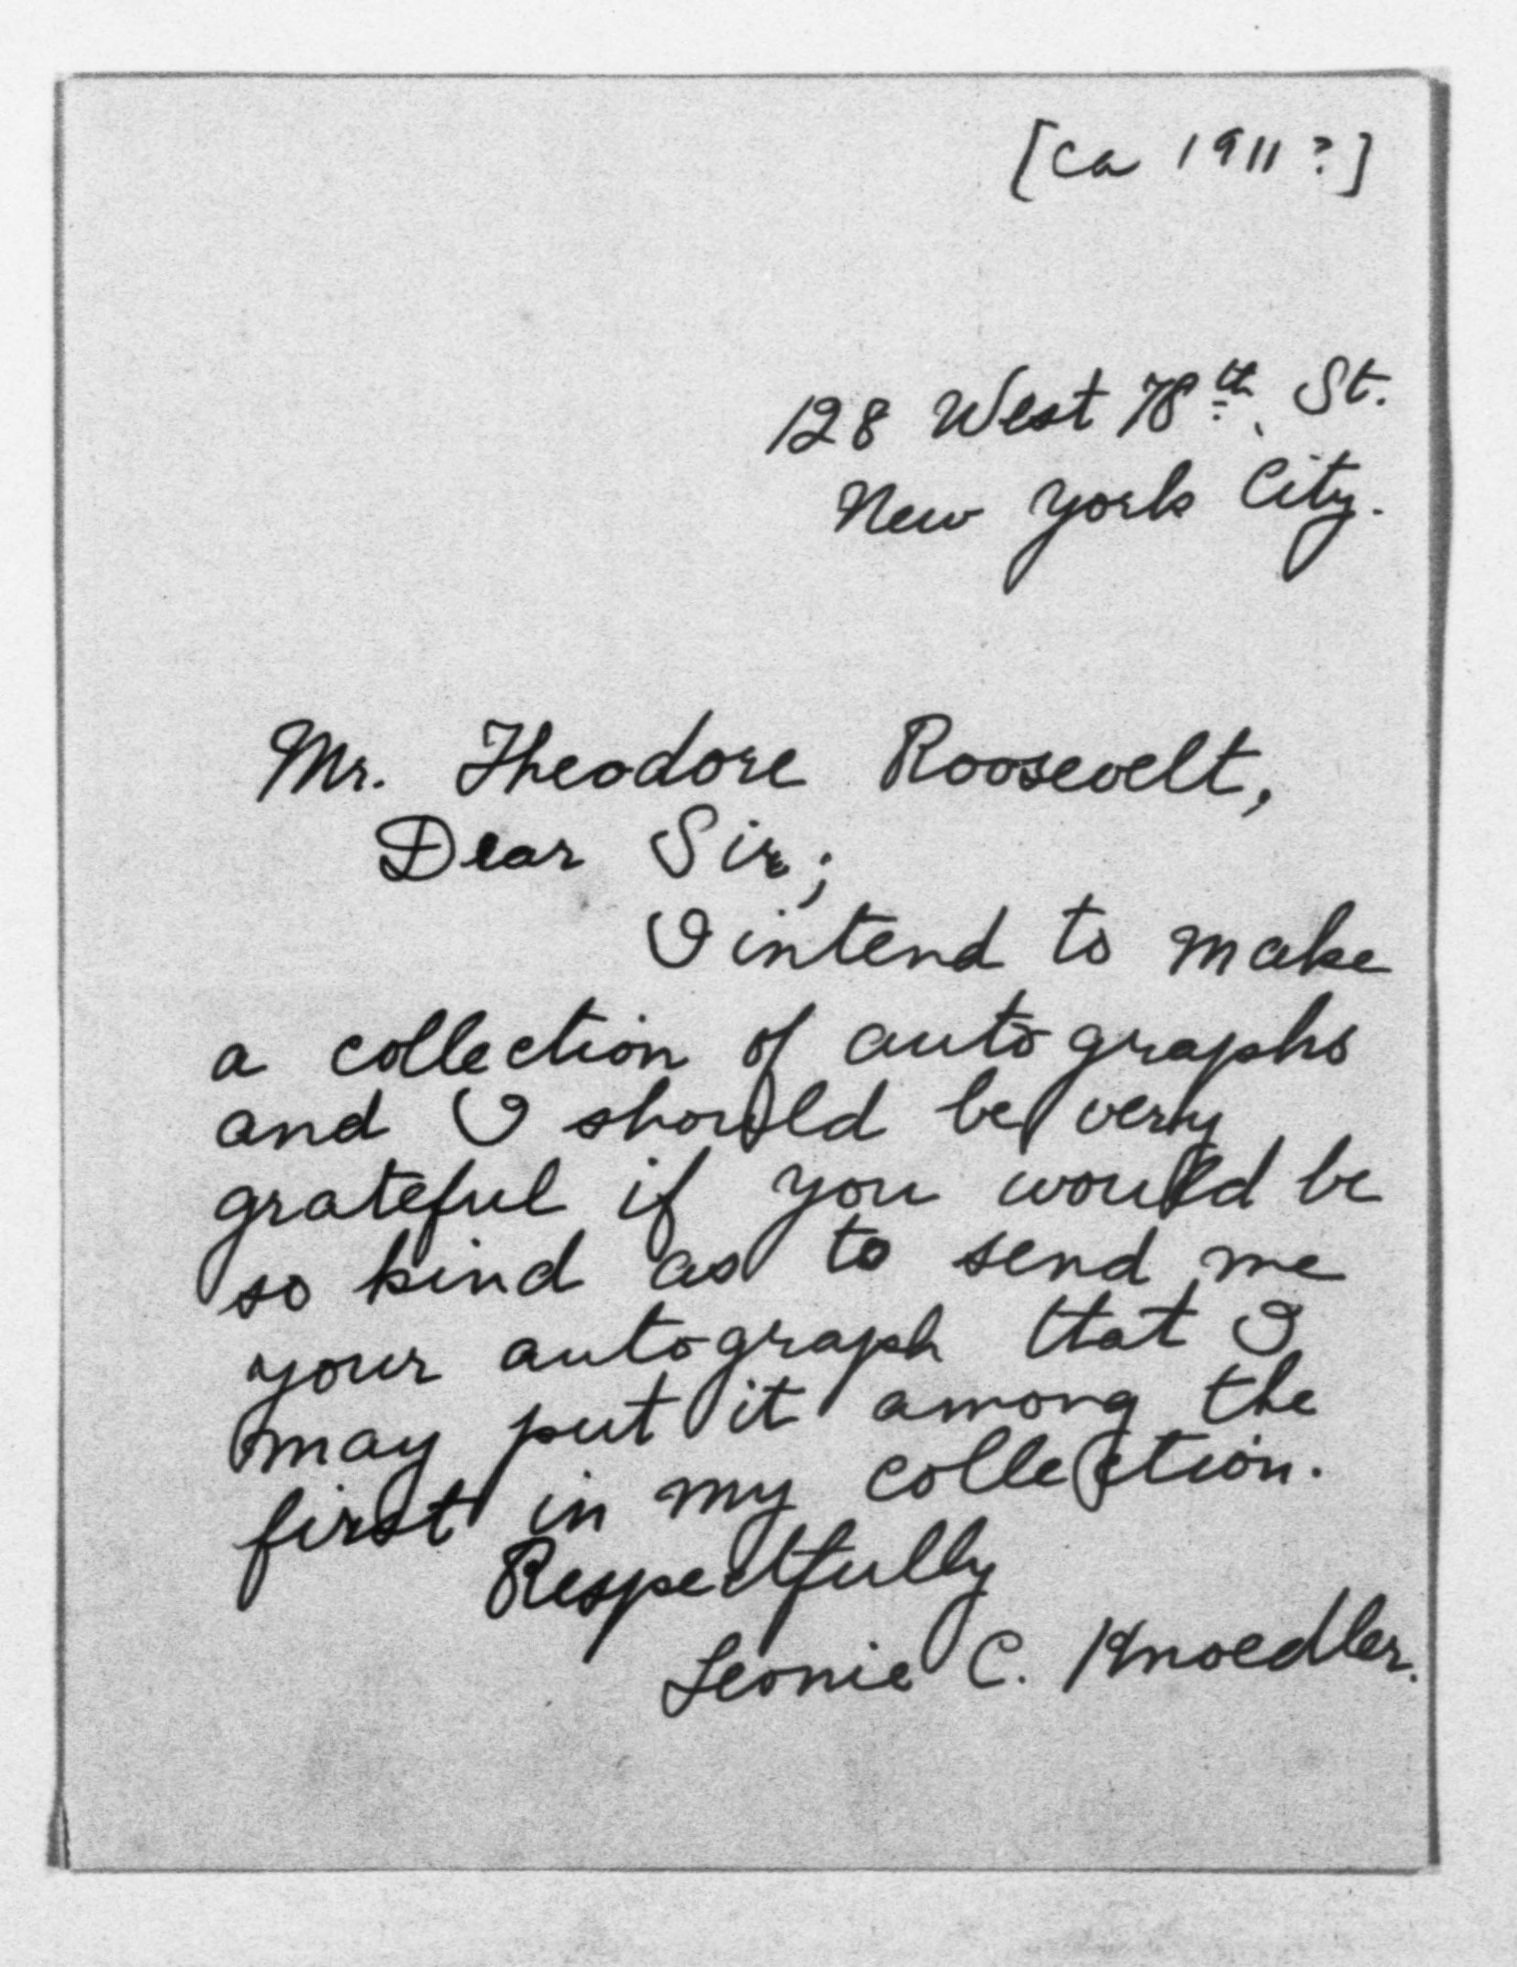 [ca 1911?]
128 West 78th St.
New York City.
Mr. Theodore Roosevelt,
Dear Sir;
I intend to make
a collection of autographs
and I should be very
grateful if you would be
so kind as to send me
your autograph that I
may put it among the
first in my collection.
Respectfully
Leonie C. Knoedler.